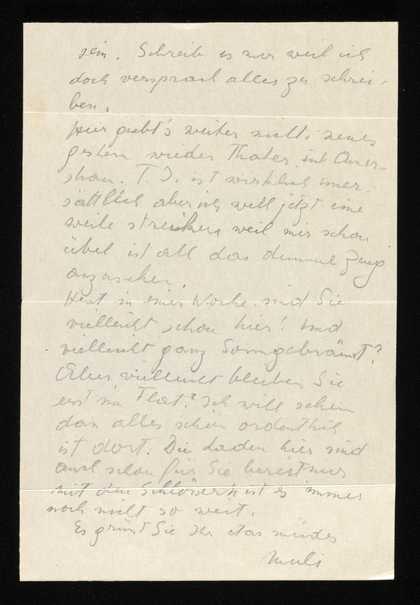 sein. Schreibe es nur weil ich
doch versprach alles zu schrei-
ben.
Hier giebt's weiter nichts neues
gestern wieder Theater mit
T. J. ist wirklich uner-
sättlich aber ich will jetzt eine
weile streiken weil mir schon
übel ist all das dumme Zeug
anzusehen.
Heut in einer Woche sind Sie
vielleicht schon hier! Und
vielleicht ganz Sonngebräunt?
Aber vielleicht bleiben Sie
erst in Flat? Ich will sehen
dass alles schön ordentlich
ist dort. Die Laden hier sind
auch schon für Sie bereit nur
mit den Schlössern ist es immer
noch nicht so weit.
Es grüsst Sie Ihr etwas müdes